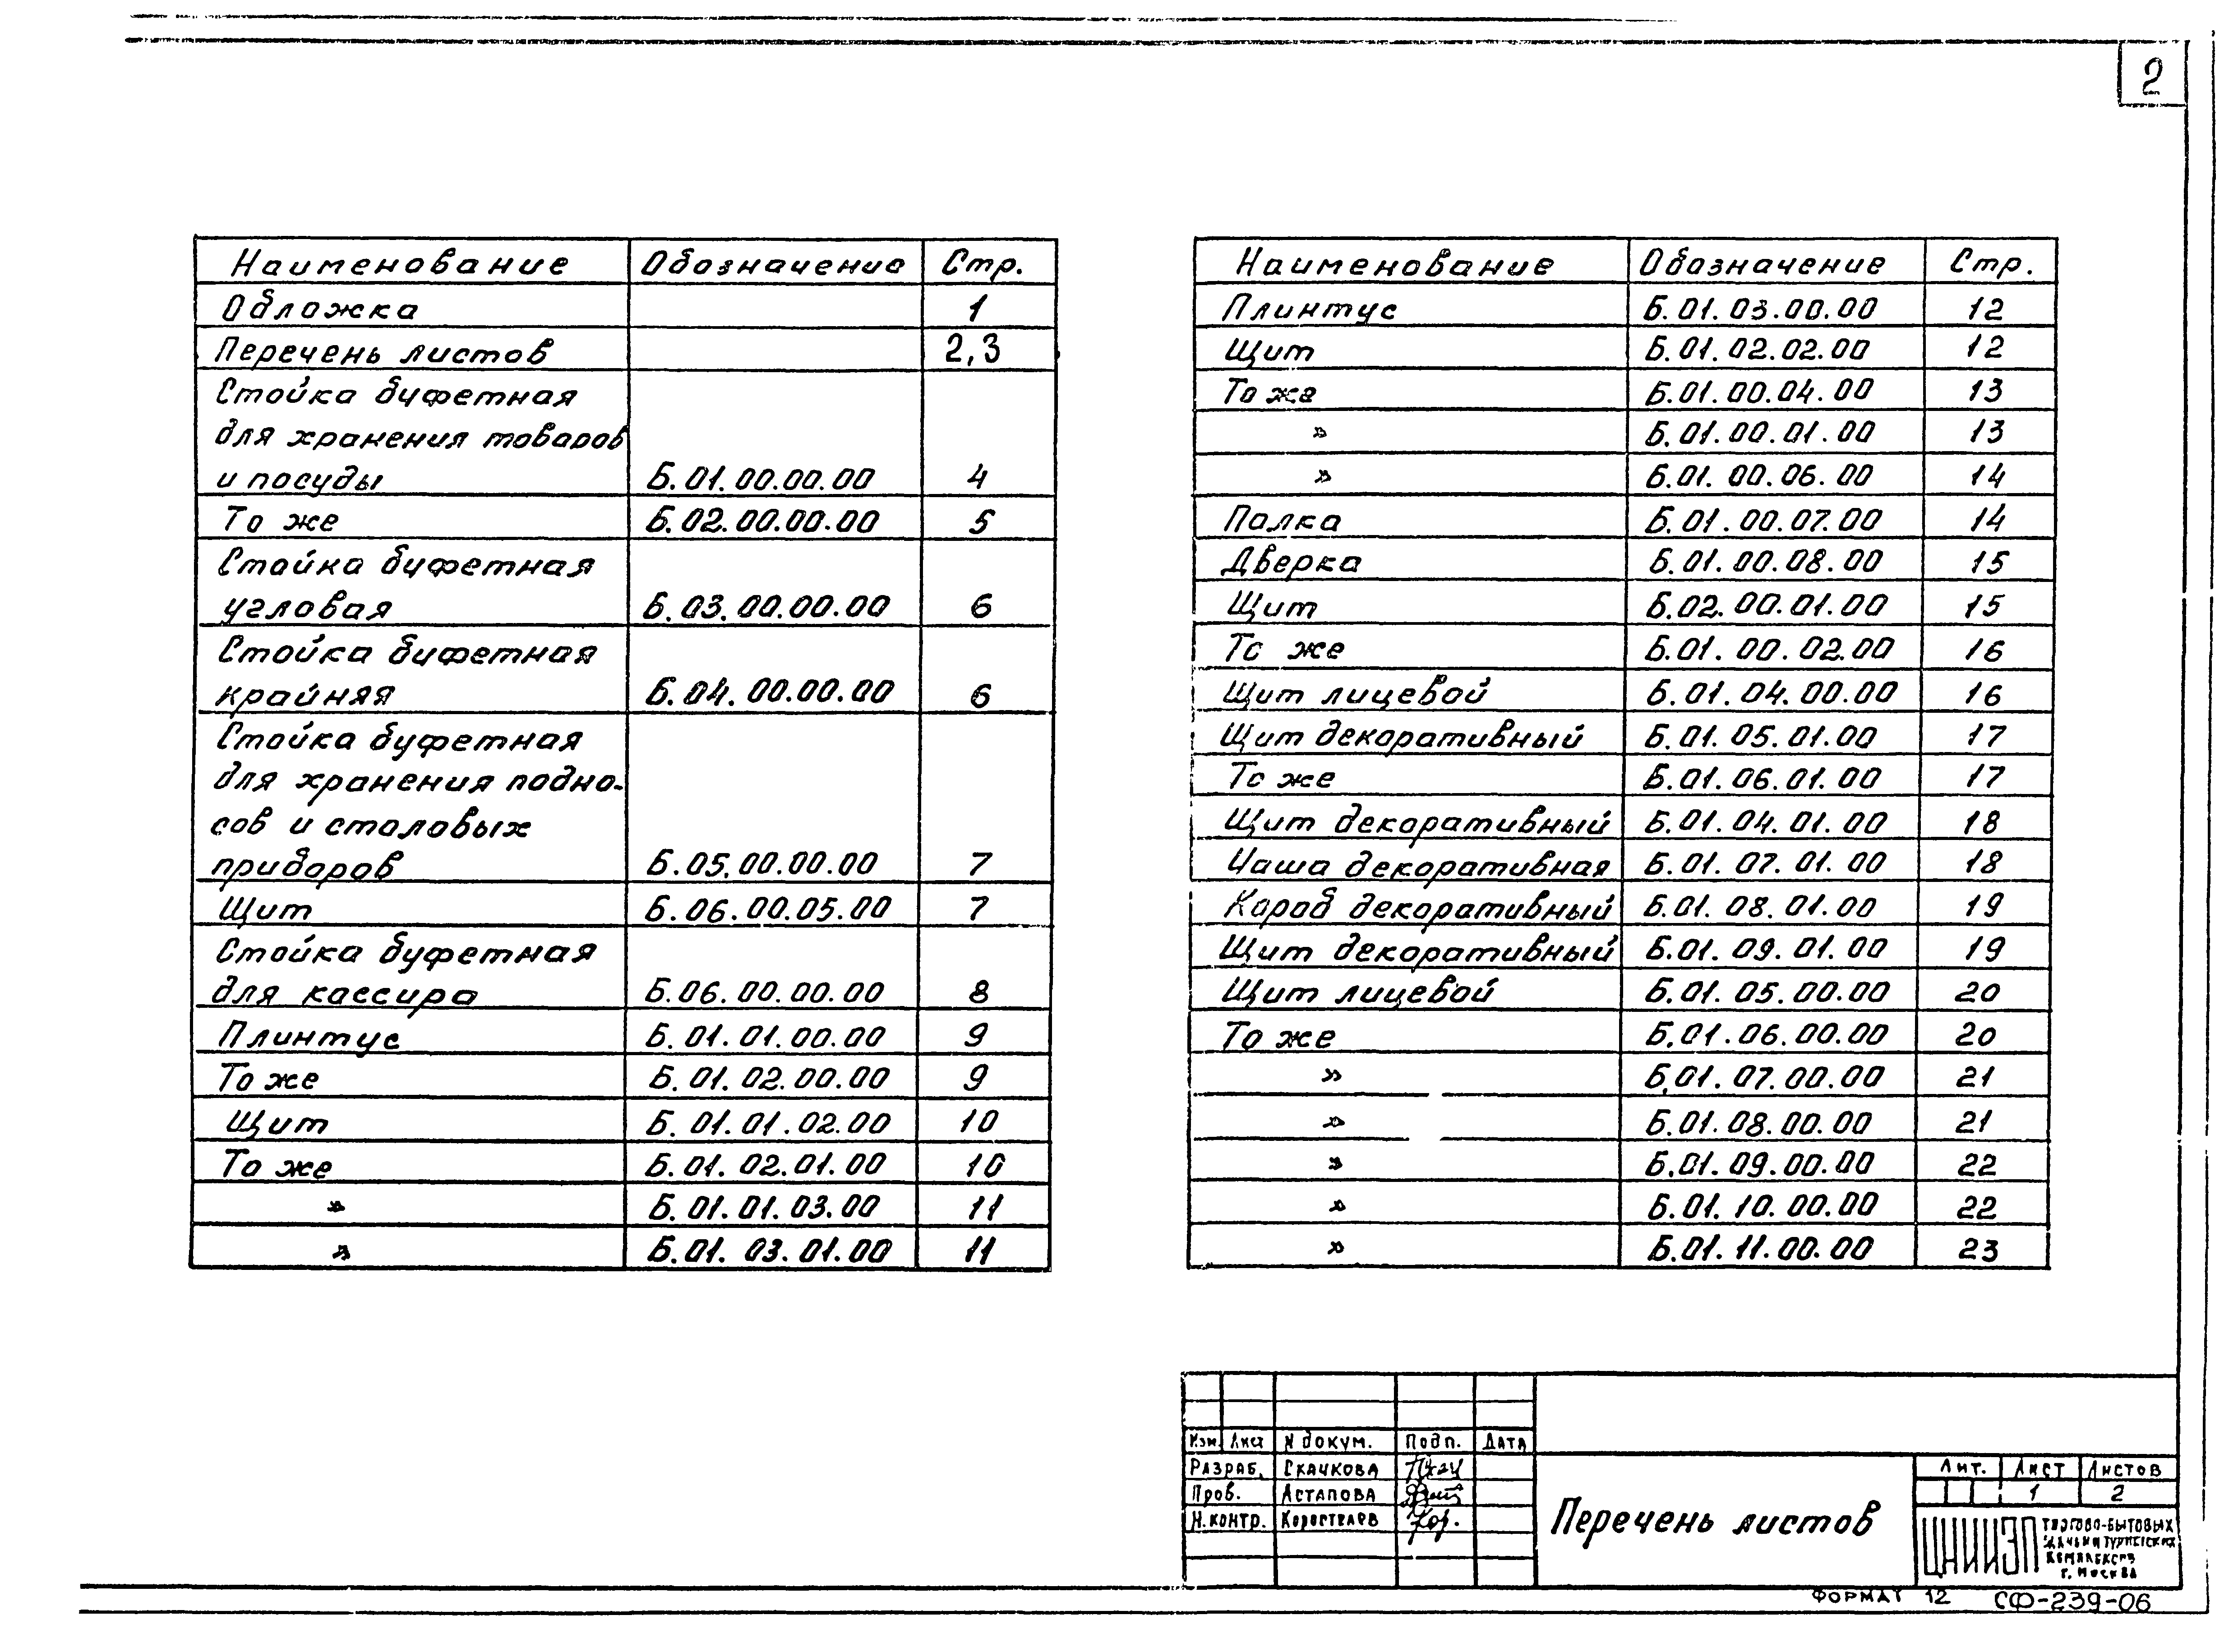 2
Наименование Обозначение Стр.
Обложка 1
Перечень листов 2,3
Стойка буфетная
для хранения товаров
и посуды Б.01.00.00.00 4
То же Б.02.00.00.00 5
Стойка буфетная
угловая Б.03.00.00.00 6
Стойка буфетная
крайняя Б.04.00.00.00 6
Стойка буфетная
для хранения подно-
сов и столовых
приборов Б.05.00.00.00 7
Щит Б.06.00.05.00 7
Стойка буфетная
для кассира Б.06.00.00.00 8
Плинтус Б.01.01.00.00 9
То же Б.01.02.00.00 9
Щит Б.01.01.02.00 10
То же Б.01.02.01.00 10
» Б.01.01.03.00 11
» Б.01.03.01.00 11
Наименование Обозначение Стр.
Плинтус Б.01.03.00.00 12
Щит Б.01.02.02.00 12
То же Б.01.00.04.00 13
» Б.01.00.01.00 13
» Б.01.00.06.00 14
Полка Б.01.00.07.00 14
Дверка Б.01.00.08.00 15
Щит Б.02.00.01.00 15
То же Б.01.00.02.00 16
Щит лицевой Б.01.04.00.00 16
Щит декоративный Б.01.05.01.00 17
То же Б.01.06.01.00 17
Щит декоративный Б.01.04.01.00 18
Чаша декоративная Б.01.07.01.00 18
Короб декоративный Б.01.08.01.00 19
Щит декоративный Б.01.09.01.00 19
Щит лицевой Б.01.05.00.00 20
То же Б.01.06.00.00 20
» Б.01.07.00.00 21
» Б.01.08.00.00 21
» Б.01.09.00.00 22
» Б.01.10.00.00 22
» Б.01.11.00.00 23
Изм. Лист N докум. Подп. Дата
Разраб. Скачкова
Пров. Астапова
Н.контр. Коростелев Кор.
Перечень листов
Лит. Лист Листов
1 2
ЦНИИЭП
торгово-бытовых
зданий и туристских
комплексов
г. Москва
Формат 12 СФ-239-06